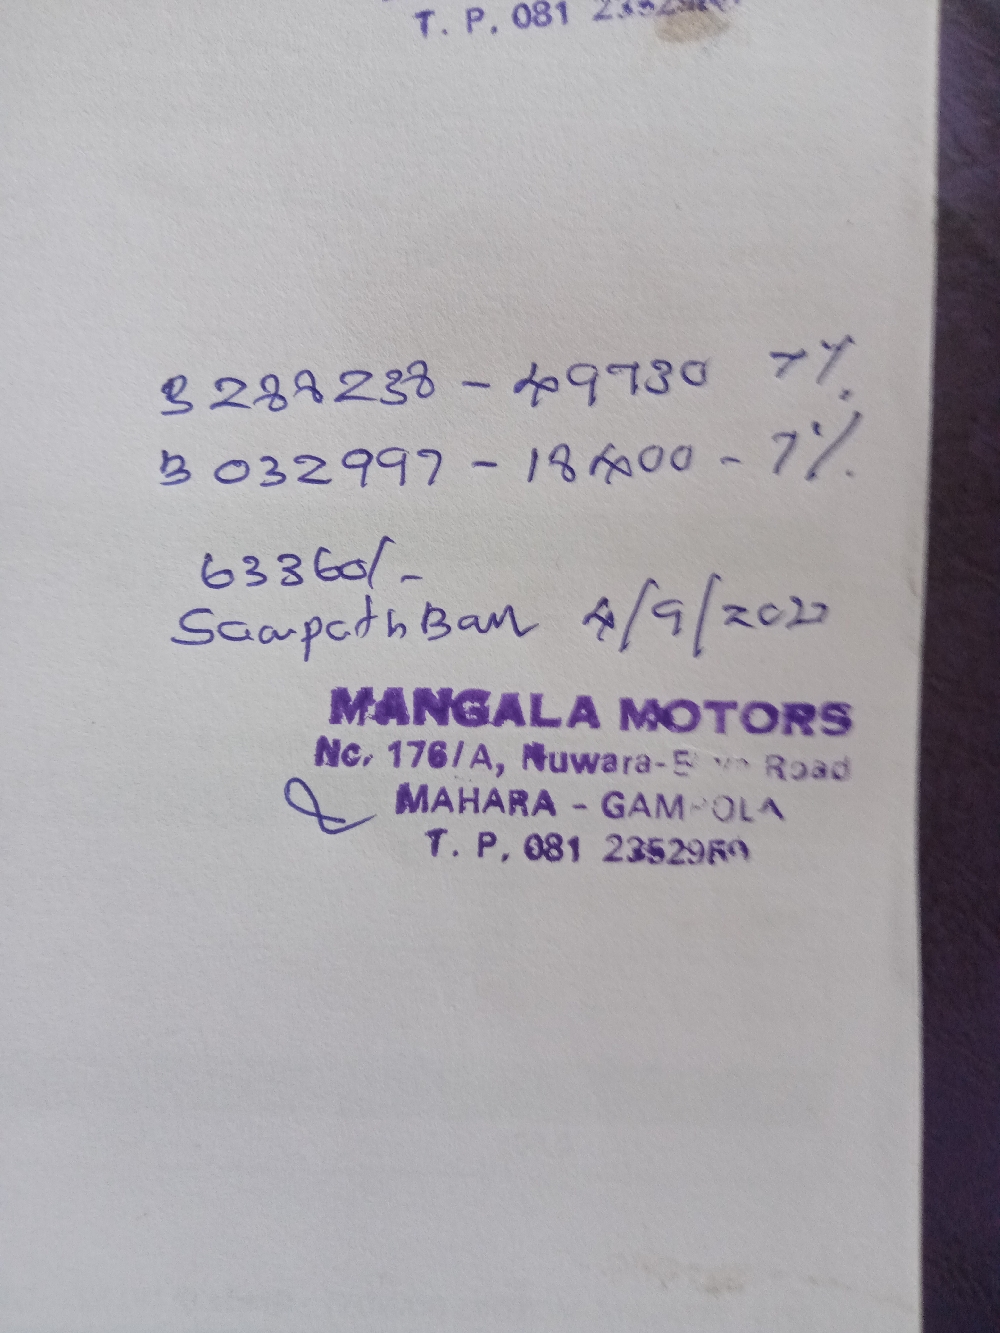 T. P. 081
B 288238 - 49730 7%
B 032997 - 18400 - 7%
63360/-
Sampath Ban 4/9/2022
MANGALA MOTORS
No. 176/A, Nuwara- Road
MAHARA - GAMPOLA
T. P. 081